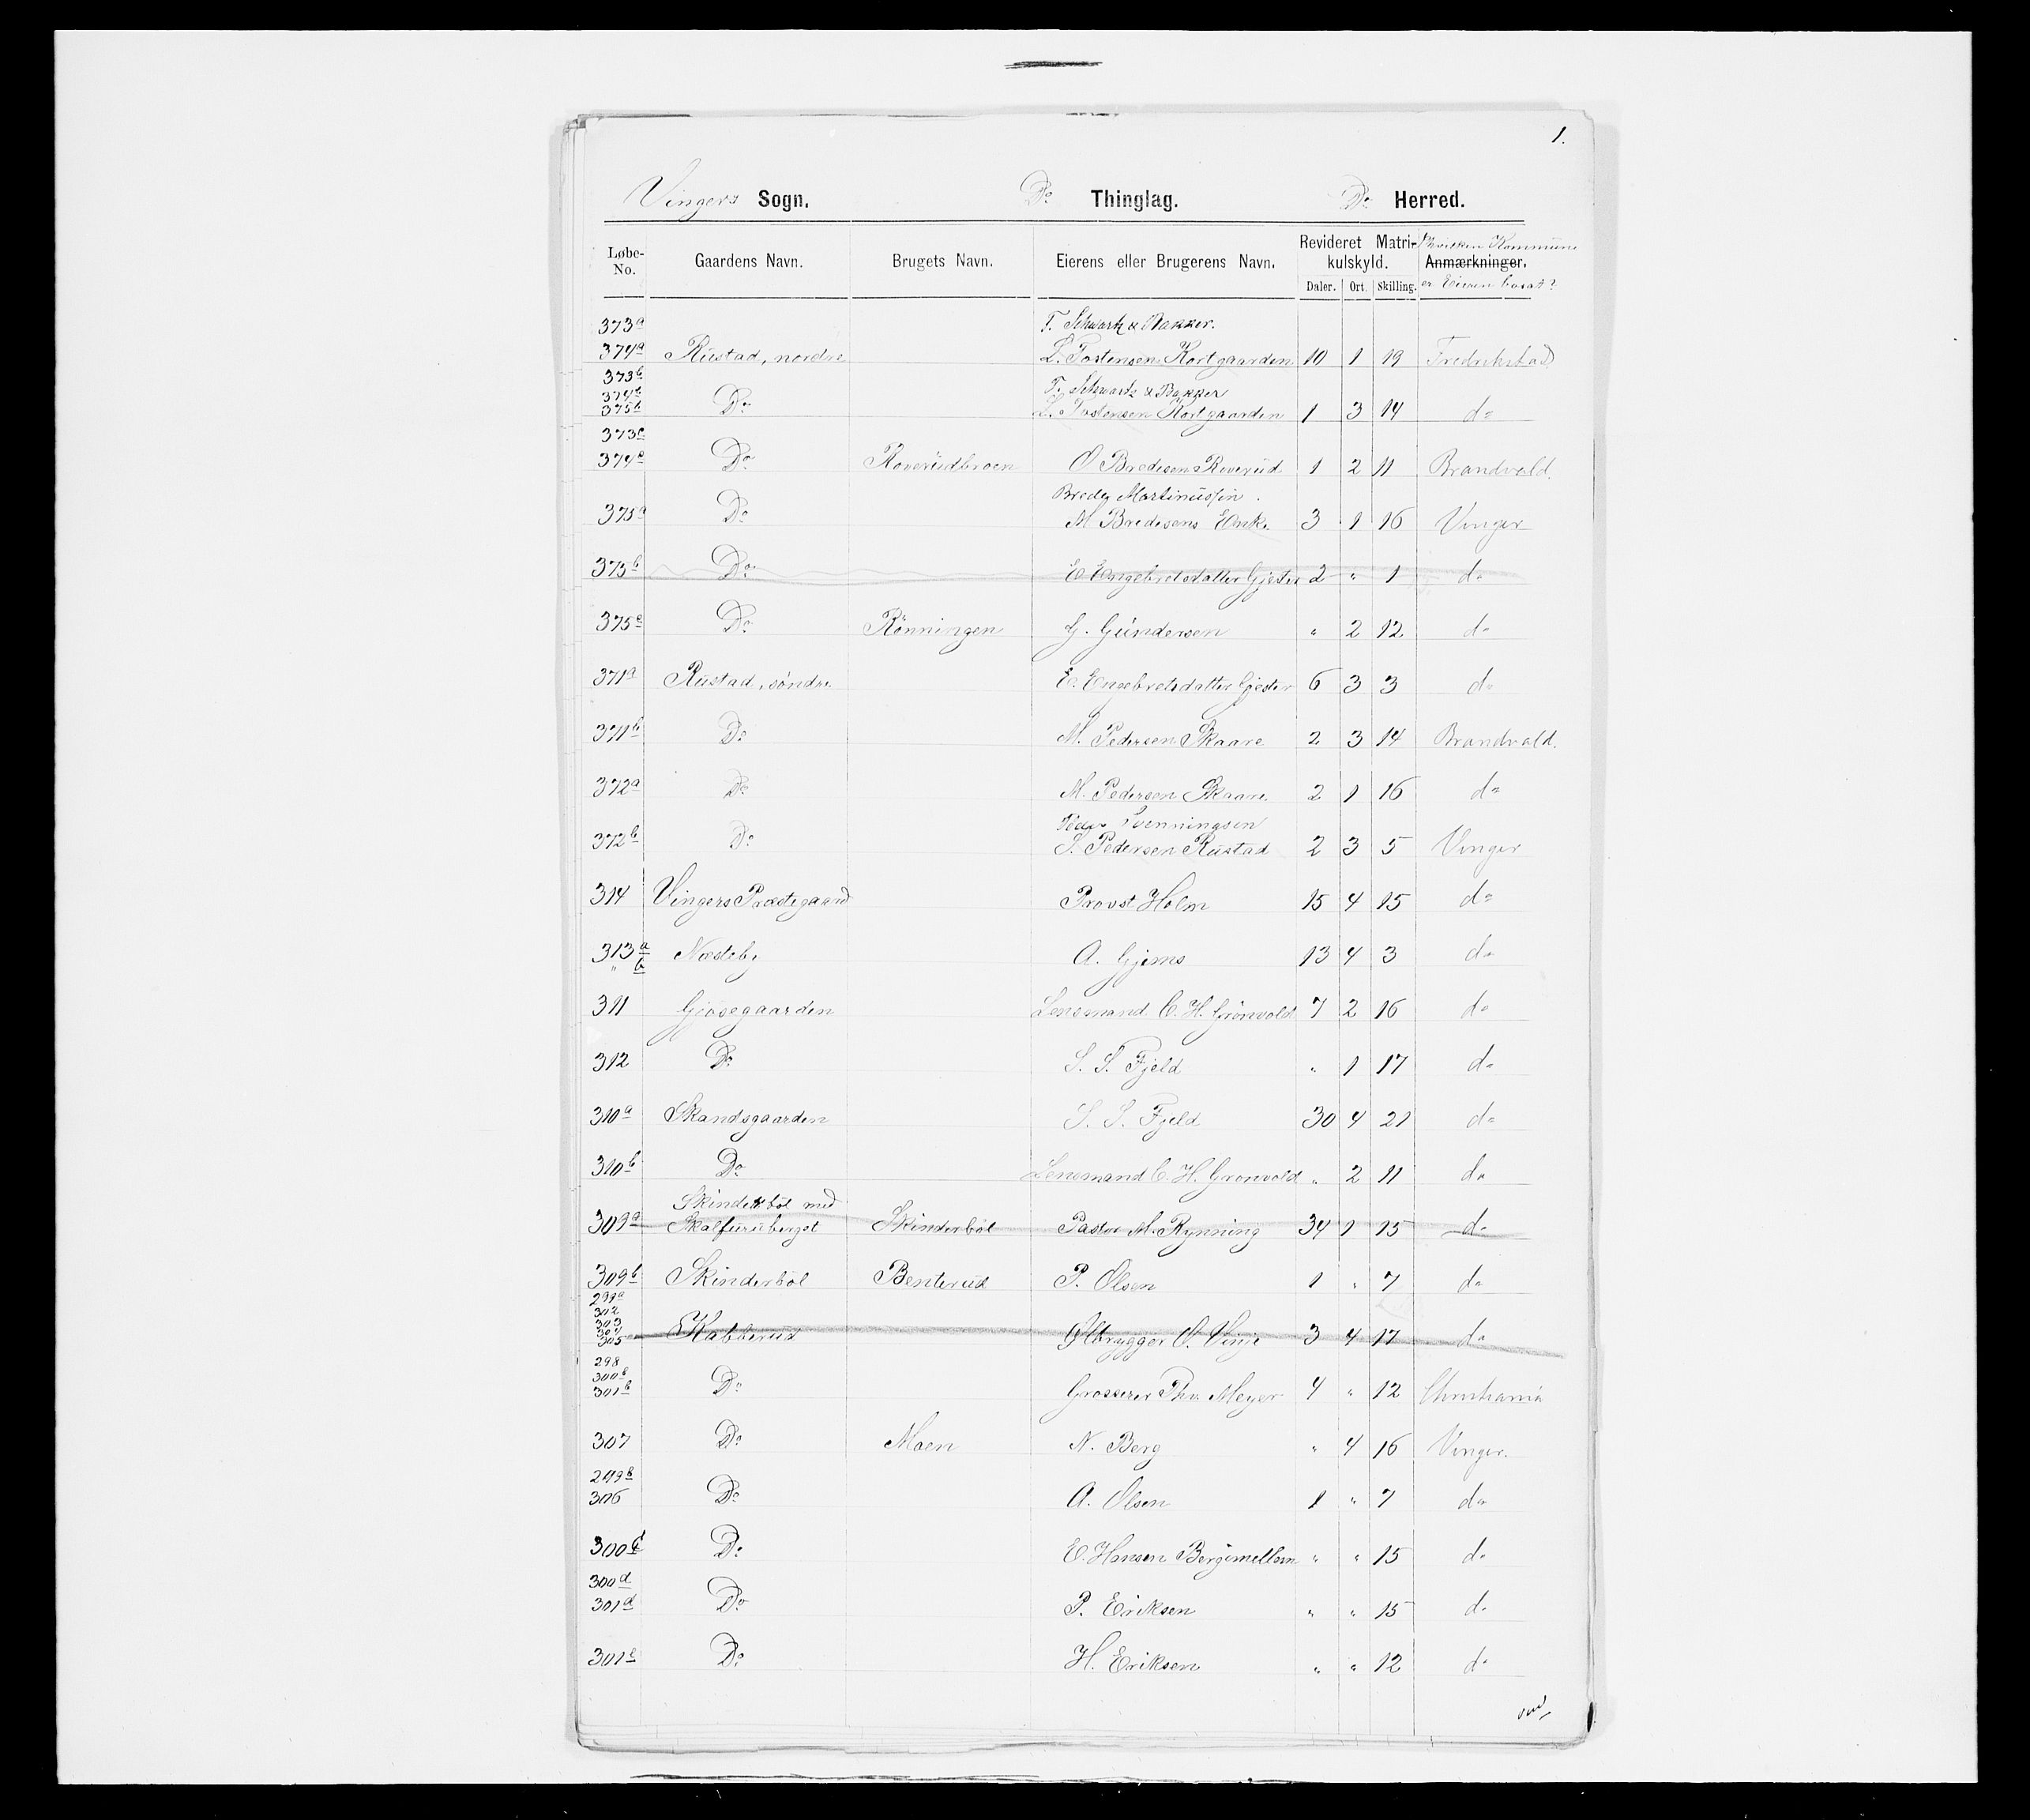 1.
Vingers Sogn. Do Thinglag. Do Herred.
Løbe-No. Gaardens Navn. Brugets Navn. Eierens eller Brugerens Navn. Revideret Matrikulskyld. Daler. Ort. Skilling. Anmærkninger. Hvilken Kommune er Eieren bosat?
373a T. Schwartz & Bakker.
374a Rustad, nordre L. Tostensen Kortgaarden 10 1 19 Fredrikstad
373b
374b T. Schwartz & Bakker
375b Do L. Tostensen Kortgaarden 1 3 14 do
373c
374c Do Roverudbroen O Bredesen Roverud 1 2 11 Brandvold.
Brede Martinussen.
375a Do M Bredesens Enke 3 1 16 Vinger
375b Do E Engebretsdatter Gjester 2 " 1 do
375c Do Rönningen G. Gundersen " 2 12 do
371a Rustad, söndre E. Engebretsdatter Gjester 6 3 3 do
371b Do M. Pedersen Skaare 2 3 14 Brandvold.
372a Do M. Pedersen Skaare 2 1 16 do
Peder Svenningsen
372b Do S. Pedersen Rustad 2 3 5 Vinger
314 Vingers Præstegaard Provst Holm 15 4 15 do
313a Næsteby A. Gjems 13 4 3 do
" b
311 Gjøsegaarden Lensmand C. H. Grönvold 7 2 16 do
312 Do S. S. Fjeld " 1 17 do
310a Skandsgaarden S. S. Fjeld 30 4 21 do
310b Do Lensmand C. H. Grønvold " 2 11 do
Skinderböl med
309a Skalfuruberget Skinderböl Pastor M. Rynning 34 1 15 do
309b Skinderböl Benterud P. Olsen 1 " 7 do
299a
302
303
305 Skabberud Ølbrygger O. Vinje 3 4 17 do
298
300b
301b Do Grosserer Thv. Meyer 4 " 12 Christiania
307 Do Moen N. Berg " 4 16 Vinger.
249b
306 Do A. Olsen 1 " 7 do
300c Do E. Hansen Bergimellem " " 15 do
300d
301d Do P. Eriksen " " 15 do
301c Do H. Eriksen " " 12 do